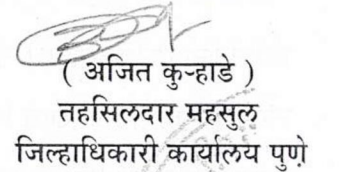 ( अजित कुऱ्हाडे )
तहसिलदार महसुल
जिल्हाधिकारी कार्यालय पुणे